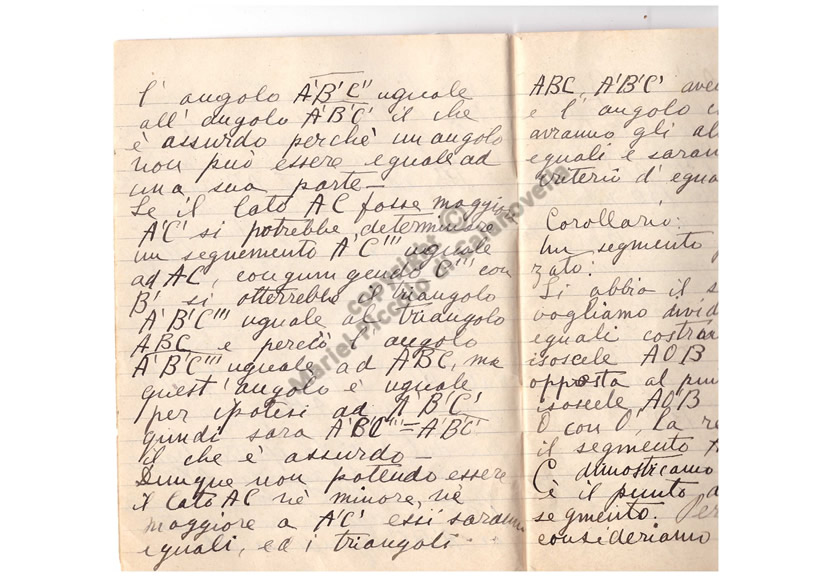 l' angolo A'B'C'' uguale
all' angolo A'B'C' il che
è assurdo perchè un angolo
non può essere eguale ad
una sua parte —
Se il lato AC fosse maggior
A'C' si potrebbe determinare
un seguemento A'C''' uguale
ad AC, congiungendo C''' con
B' si otterrebbe il triangolo
A'B'C''' uguale al triangolo
ABC e perciò l' angolo
A'B'C''' uguale ad ABC, ma
quest' angolo è uguale
per ipotesi ad A'B'C'
quindi sara A'B'C''' = A'B'C'
il che è assurdo —
Dunque non potendo essere
il lato AC nè minore, nè
maggiore a A'C' essi saranno
eguali, ed i triangoli
ABC, A'B'C' ave
e l' angolo
avranno gli al
eguali e saran
criterio d' egua
Corollario:
un segmento
zato:
Si abbia il s
vogliamo divid
eguali costru
isoscele AOB
opposta al pun
isoscele AO'B
O con O', La re
il segmento
C dimostriamo
è il punto
segmento. Per
consideriamo
copyright ©
Mariel Piccolo di Calanovella